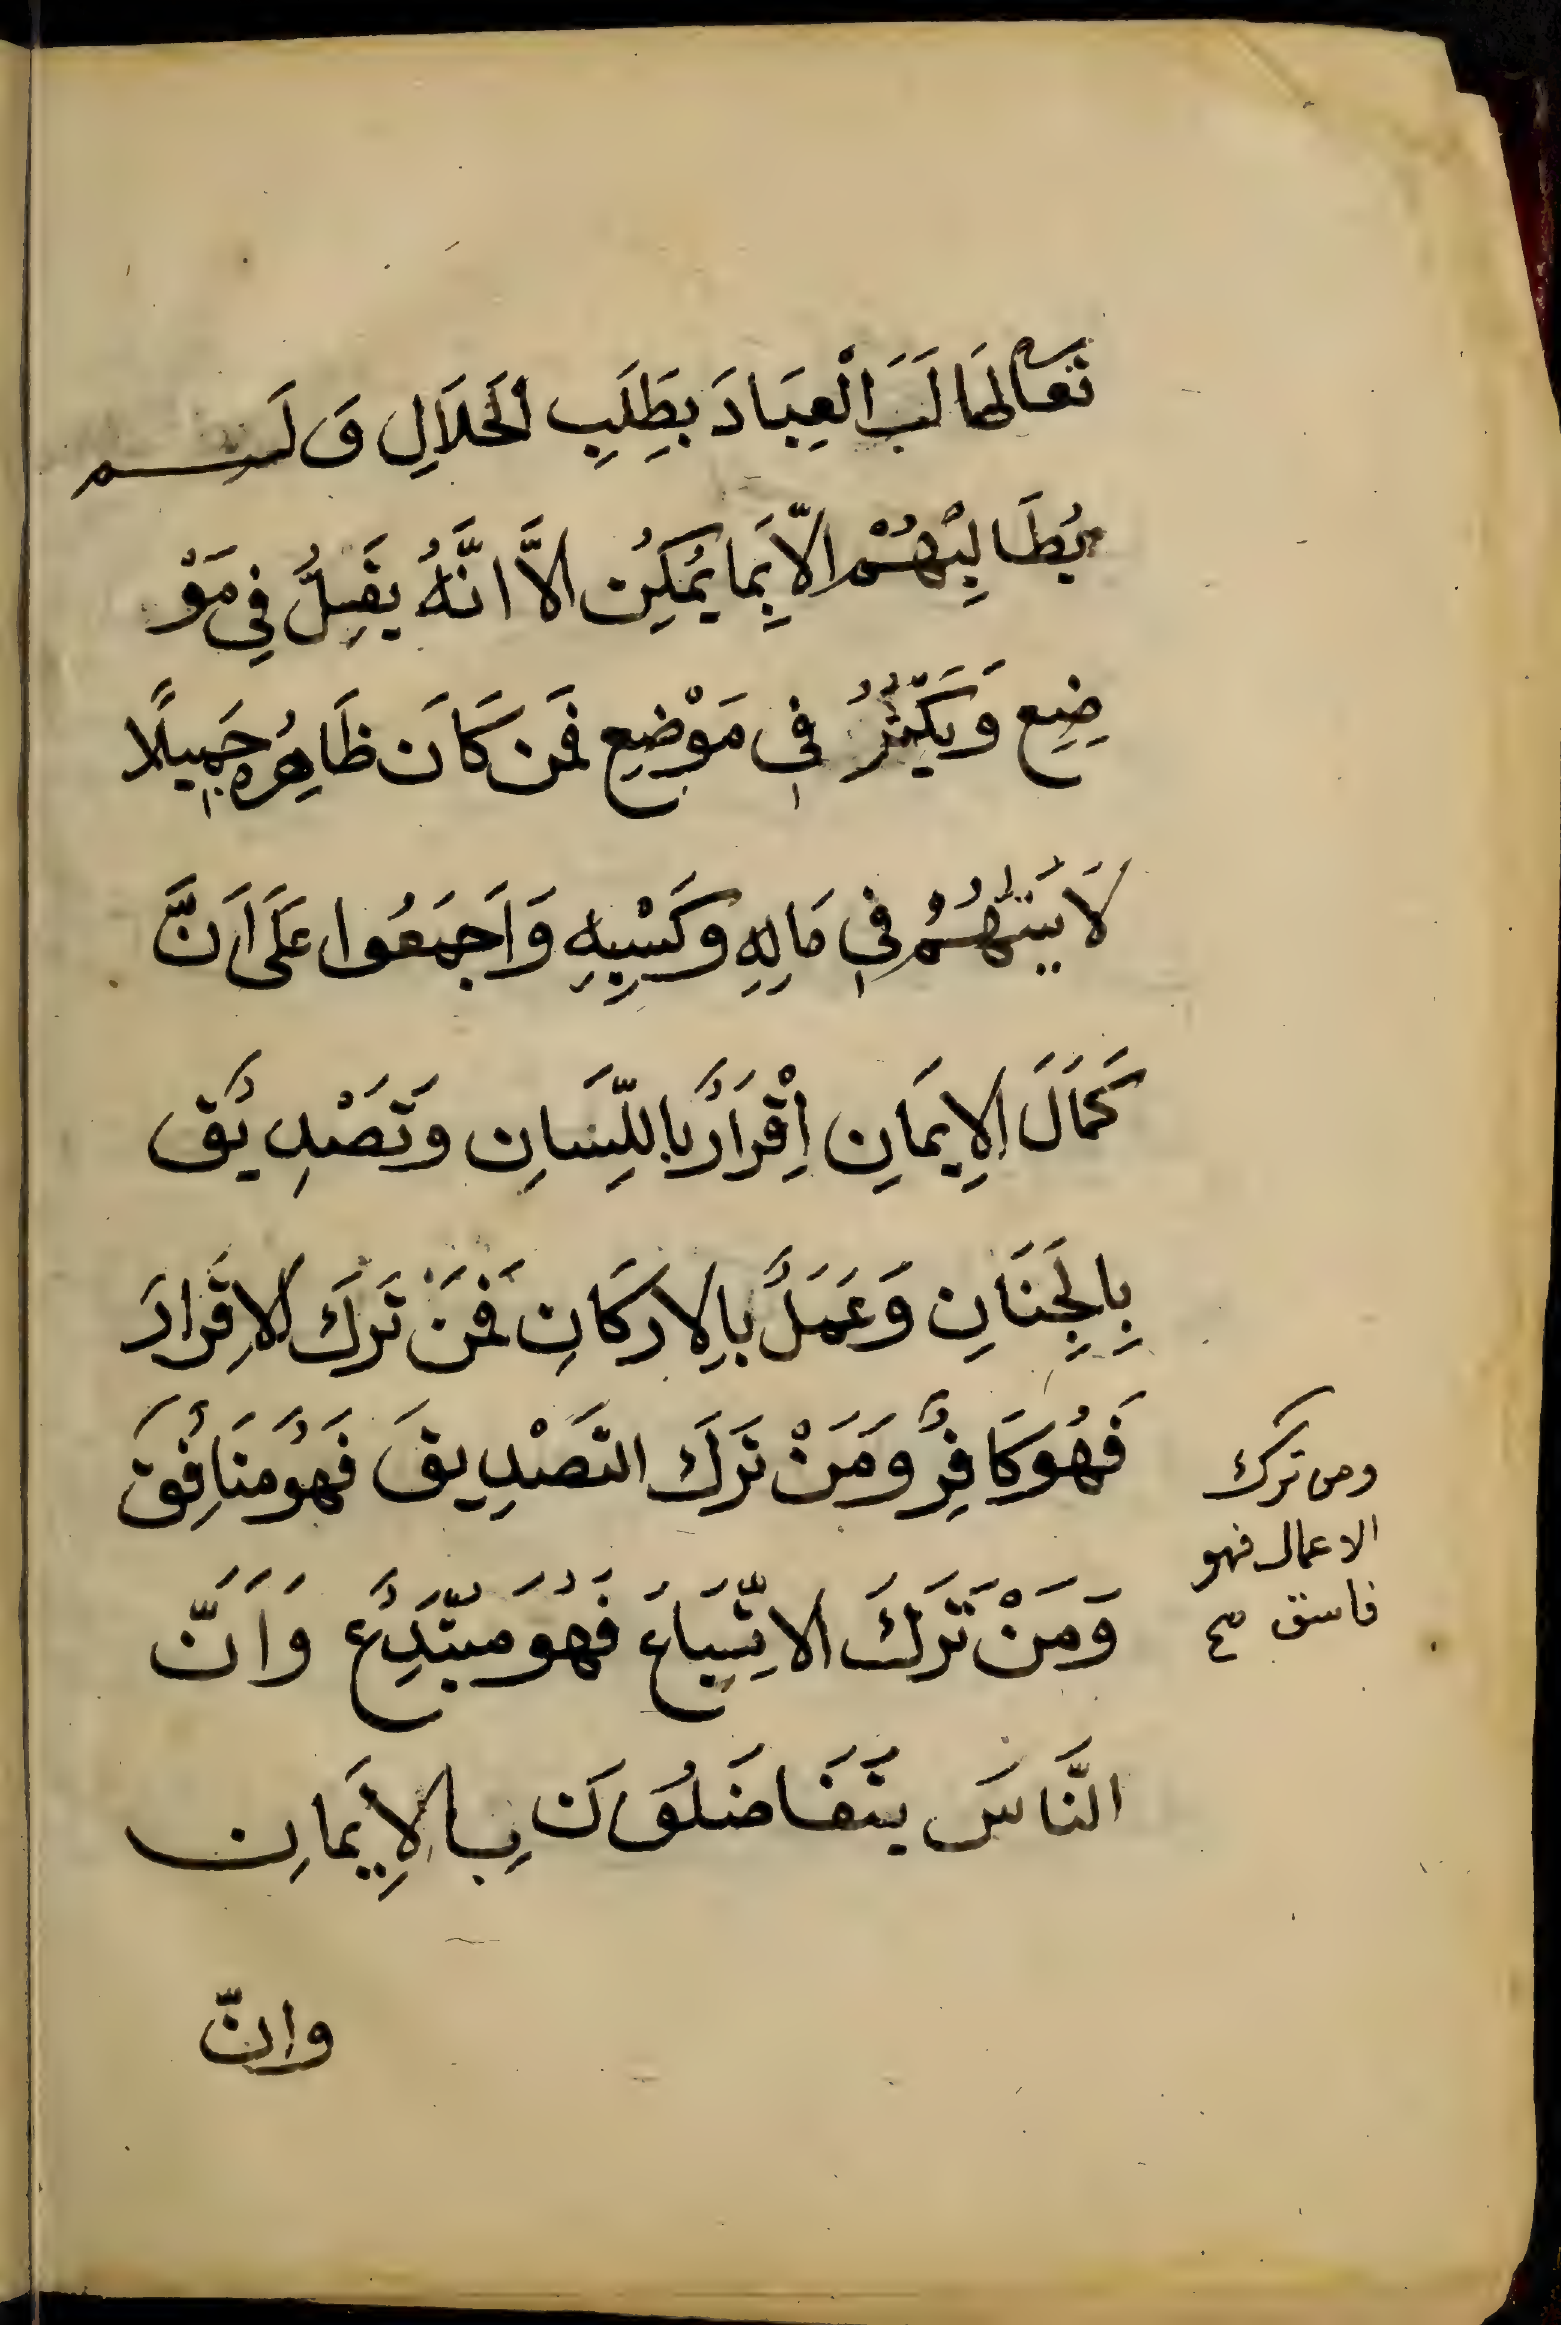 تَعَالَى طَالَبَ الْعِبَادَ بِطَلَبِ الْحَلَالِ وَلَم
يُطَالِبْهُمْ الاّ بِمَا يُمْكِنُ الاَّ انَّهُ يَقِلُّ فِي مَوْ
ضِعٍ وَيَكْثُرُ فِي مَوْضِعٍ فَمَن كَانَ ظَاهِرُهُ جَمِيلًا
لَا يُتَّهَمُ فِي مَالِهِ وَكَسْبِهِ وَاَجمَعُوا عَلَى اَنَّ
كَمَالَ الاِيمَانِ اِقْرَارٌ بِاللِّسَانِ وَتَصْدِيقٌ
بِالجَنَانِ وَعَمَلٌ بِالاركَانِ فَمَنْ تَرَكَ الاِقرارَ
فَهُوَ كَافِرٌ وَمَنْ تَرَكَ التَصْدِيقَ فَهُوَ مُنَافِقٌ
وَمَنْ تَرَكَ الاتِّبَاعَ فَهُوَ مُبْتَدِعٌ وَاَنَّ
النَّاسَ يَتَفَاضَلُونَ بِالاِيمَانِ
وانّ
ومن ترك
الاعمال فهو
فاسق صح